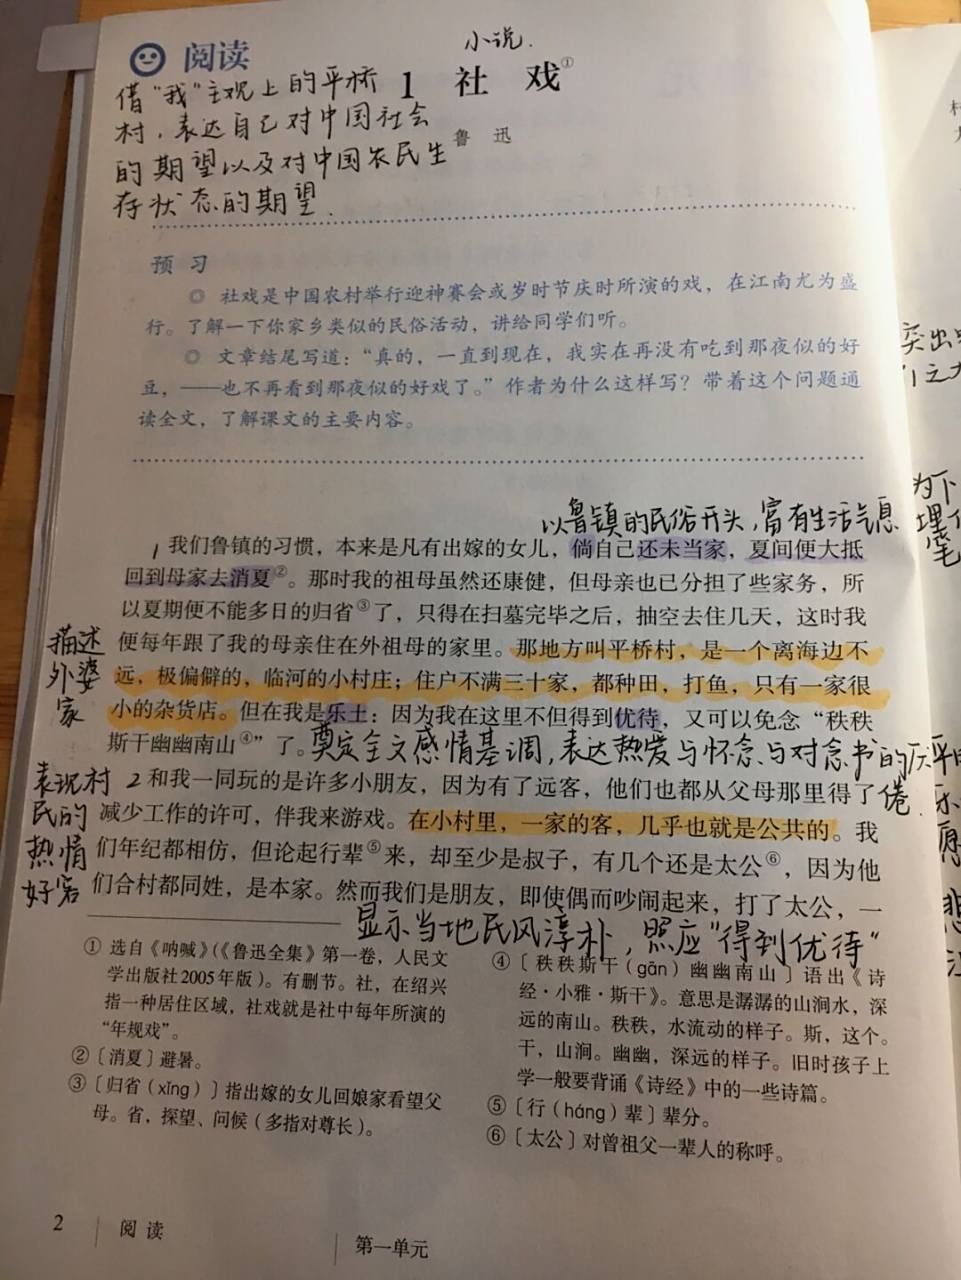 阅读
小说.
1 社戏①
鲁迅
借“我”主观上的平桥
村，表达自己对中国社会
的期望以及对中国农民生
存状态的期望.
预习
◎ 社戏是中国农村举行迎神赛会或岁时节庆时所演的戏，在江南尤为盛
行。了解一下你家乡类似的民俗活动，讲给同学们听。
◎ 文章结尾写道：“真的，一直到现在，我实在再没有吃到那夜似的好
豆，——也不再看到那夜似的好戏了。”作者为什么这样写？带着这个问题通
读全文，了解课文的主要内容。
以鲁镇的民俗开头，富有生活气息
1 我们鲁镇的习惯，本来是凡有出嫁的女儿，倘自己还未当家，夏间便大抵
回到母家去消夏②。那时我的祖母虽然还康健，但母亲也已分担了些家务，所
以夏期便不能多日的归省③了，只得在扫墓完毕之后，抽空去住几天，这时我
便每年跟了我的母亲住在外祖母的家里。那地方叫平桥村，是一个离海边不
远，极偏僻的，临河的小村庄；住户不满三十家，都种田，打鱼，只有一家很
小的杂货店。但在我是乐土：因为我在这里不但得到优待，又可以免念“秩秩
斯干幽幽南山④”了。
描述
外婆
家
奠定全文感情基调，表达热爱与怀念、与对念书的厌
倦.
2 和我一同玩的是许多小朋友，因为有了远客，他们也都从父母那里得了
减少工作的许可，伴我来游戏。在小村里，一家的客，几乎也就是公共的。我
们年纪都相仿，但论起行辈⑤来，却至少是叔子，有几个还是太公⑥，因为他
们合村都同姓，是本家。然而我们是朋友，即使偶而吵闹起来，打了太公，一
表现村
民的
热情
好客
显示当地民风淳朴，照应“得到优待”
① 选自《呐喊》（《鲁迅全集》第一卷，人民文
学出版社2005年版）。有删节。社，在绍兴
指一种居住区域，社戏就是社中每年所演的
“年规戏”。
② 〔消夏〕避暑。
③ 〔归省（xǐng）〕指出嫁的女儿回娘家看望父
母。省，探望、问候（多指对尊长）。
④ 〔秩秩斯干（gān）幽幽南山〕语出《诗
经·小雅·斯干》。意思是潺潺的山涧水，深
远的南山。秩秩，水流动的样子。斯，这个。
干，山涧。幽幽，深远的样子。旧时孩子上
学一般要背诵《诗经》中的一些诗篇。
⑤ 〔行（háng）辈〕辈分。
⑥ 〔太公〕对曾祖父一辈人的称呼。
2 阅读
第一单元
突出
为下